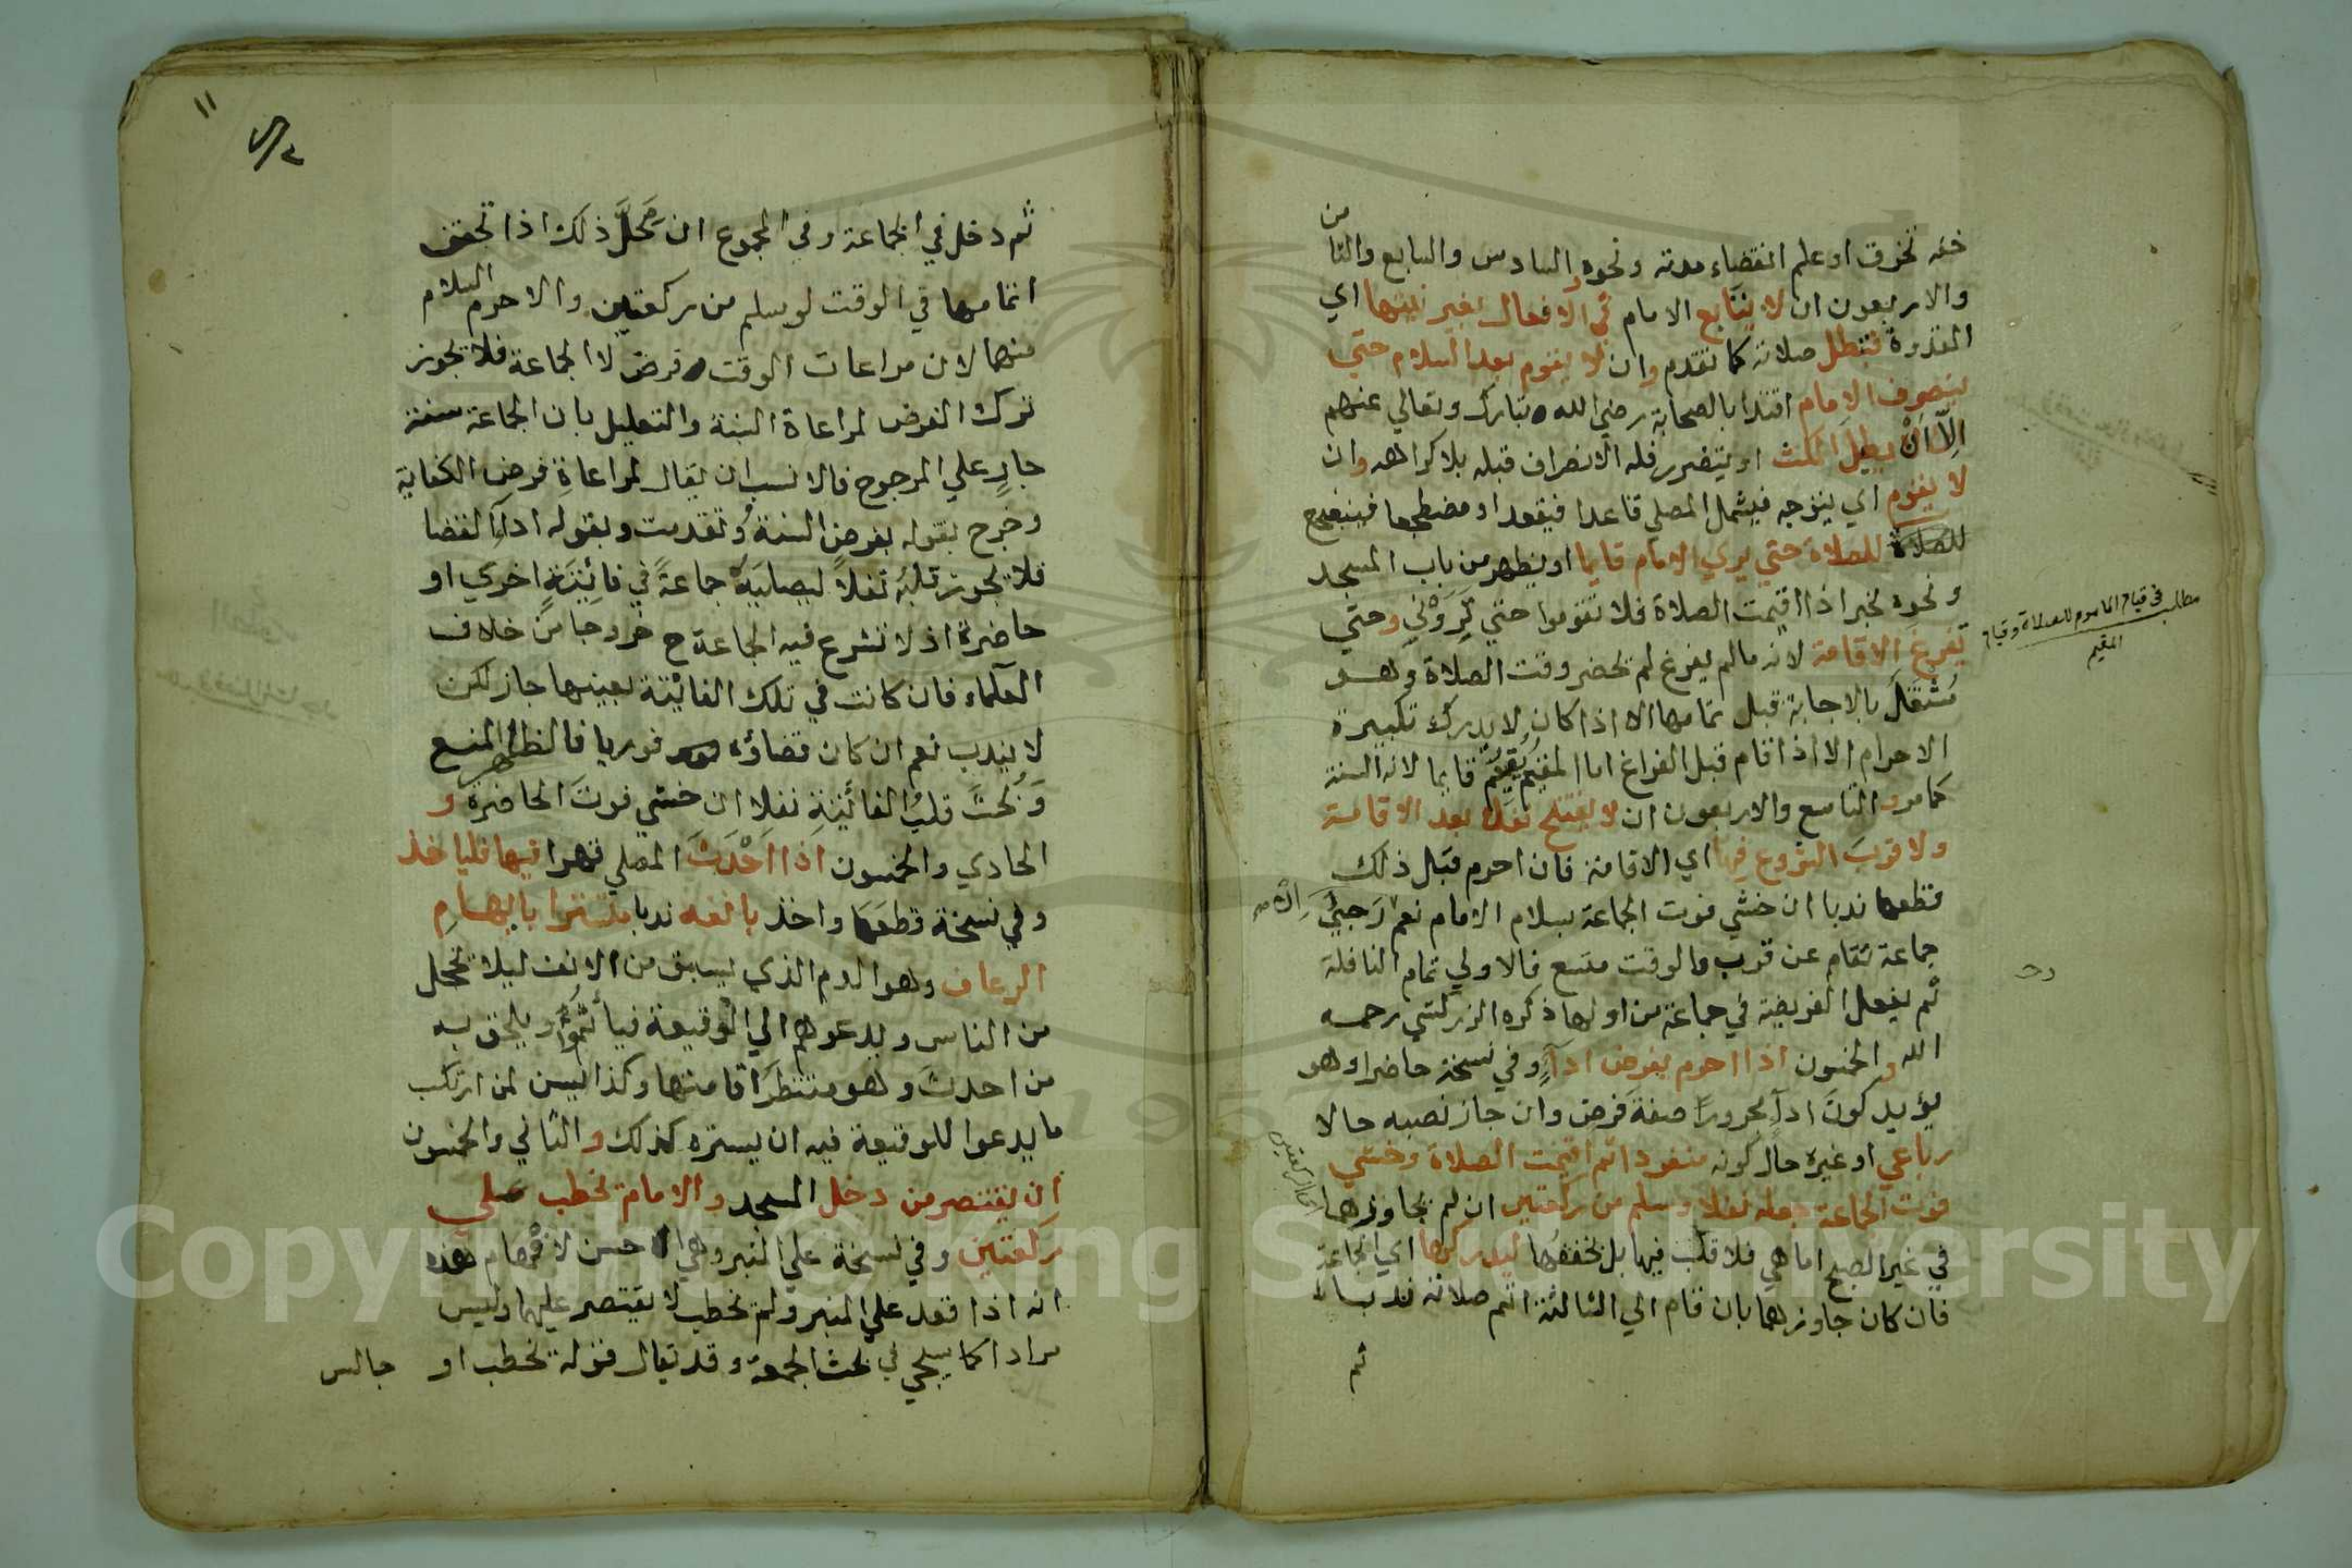 خفه تخرق او علم انقضاء مدته ونحوه والسادس والسابع والثامن
والاربعون ان لا يتابع الامام في الافعال بغير نيتها اي
القدوة فتبطل صلاته كما تقدم وان لا يقوم بعد السلام حتي
ينصرف الامام اقتدا بالصحابة رضي الله تبارك وتعالي عنهم
الا ان يطيل المكث او يتضرر فله الانصراف قبله بلا كراهه وان
لا يقوم اي يتوجه فيشمل المصلي قاعدا فيقعد او مضطجعا فيضطجع
للصلاة حتي يري الامام قايما او يظهر من باب المسجد
ونحوه لخبر اذا اقيمت الصلاة فلا تقوموا حتي تروني وحتي
تفرغ الاقامة لانه مالم يفرغ لم يحضر وقت الصلاة وهو
مشتغل بالاجابة قبل تمامها الا اذا كان لا يدرك تكبيرة
الاحرام الا اذا قام قبل الفراغ اما المقيم فيقيم قايما لانه السنة
كما مر والتاسع والاربعون ان لا يفتتح نفلا بعد الاقامة
ولا قرب الشروع فيها اي الاقامة فان احرم قبل ذلك
قطعها ندبا ان خشي فوت الجماعة بسلام الامام نعم رجي
جماعة تقام عن قرب والوقت متسع فالاولي تمام النافلة
ثم يفعل الفريضة في جماعة من اولها ذكره الزركشي رحمه
الله والخمسون اذا احرم بفرض اداء وفي نسخة حاضرا وهو
يؤيد كون اداء مجرورا صفة فرض وان جاز نصبه حالا
رباعي او غيره حال كونه منفردا ثم اقيمت الصلاة وخشي
فوت الجماعة جعله نفلا وسلم من ركعتين ان لم يجاوزهما
في غير الصبح اما هي فلا قلب فيها بل يخففها ليدركها اي الجماعة
فان كان جاوزهما بان قام الي الثالثة اتم صلاته ندبا
ثم
مطلب في قيام الماموم للصلاة وقيام
المقيم
اي الركعتين
١١
ثم دخل في الجماعة وفي المجموع ان محل ذلك اذا تحقق
اتمامها في الوقت لو سلم من ركعتين والا حرم السلام
منهما لان مراعات الوقت فرض لا الجماعة فلا يجوز
ترك الفرض لمراعاة السنة والتعليل بان الجماعة سنة
جار علي المرجوح فالانسب ان يقال لمراعاة فرض الكفاية
وخرج بقوله بفرض السنة وتقدمت وبقوله اداء القضا
فلا يجوز قلبه نفلا ليصليه جماعة في فائيتة اخري او
حاضرة اذ لا تشرع فيه الجماعة ح خروجا من خلاف
العلماء فان كانت في تلك الفائيتة بعينها جاز لكن
لا يندب نعم ان كان قضاؤه فوريا فالظاهر المنع
وبحث قلب الفائيتة نفلا ان خشي فوت الحاضرة و
الحادي والخمسون اذا احدث المصلي قهرا فيها فلياخذ
وفي نسخة قطعها واخذ بانفه ندبا متسترا بايهام
الرعاف وهو الدم الذي يسبق من الانف ليلا تخجل
من الناس ويدعوهم الي الوقيعة فيأثموا ويلحق به
من احدث وهو منتظر اقامتها وكذا يسن لمن ارتكب
ما يدعوا للوقيعة فيه ان يستره كذلك والثاني والخمسون
ان يقتصر من دخل المسجد والامام يخطب علي
ركعتين وفي نسخة علي المنبر وهي احسن لافهام هذه
انه اذا قعد علي المنبر ولم يخطب لا يقتصر عليهما وليس
مرادا كما سيجي في بحث الجمعة وقد يقال قوله يخطب او جالس